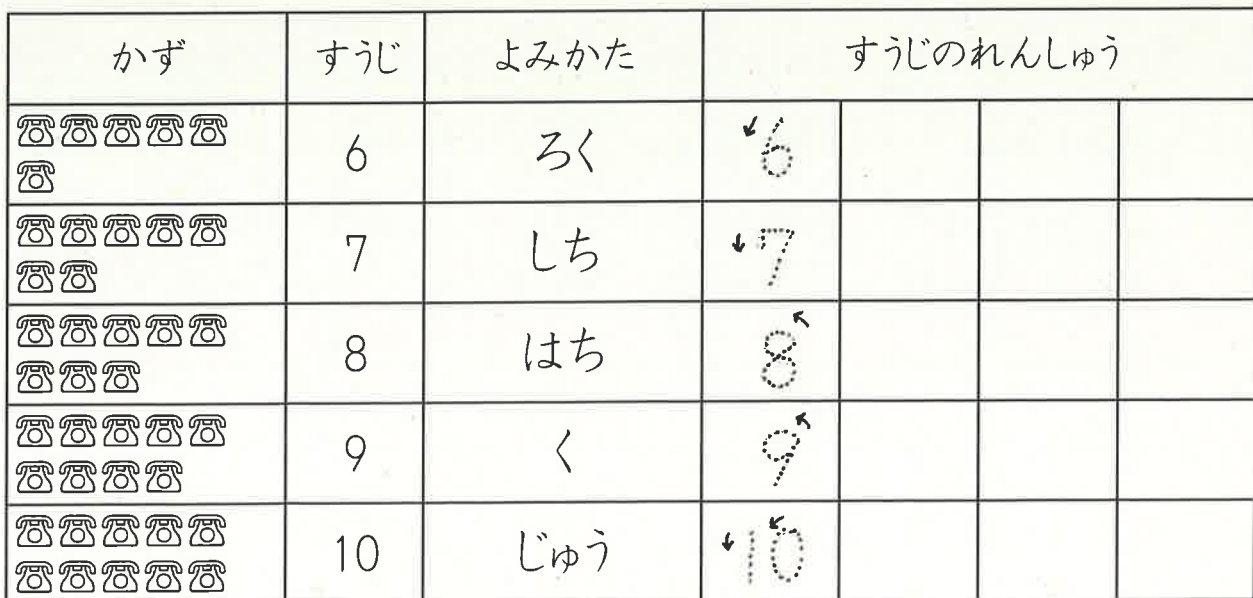 かず すうじ よみかた すうじのれんしゅう
6 ろく 6
7 しち 7
8 はち 8
9 く 9
10 じゅう 10